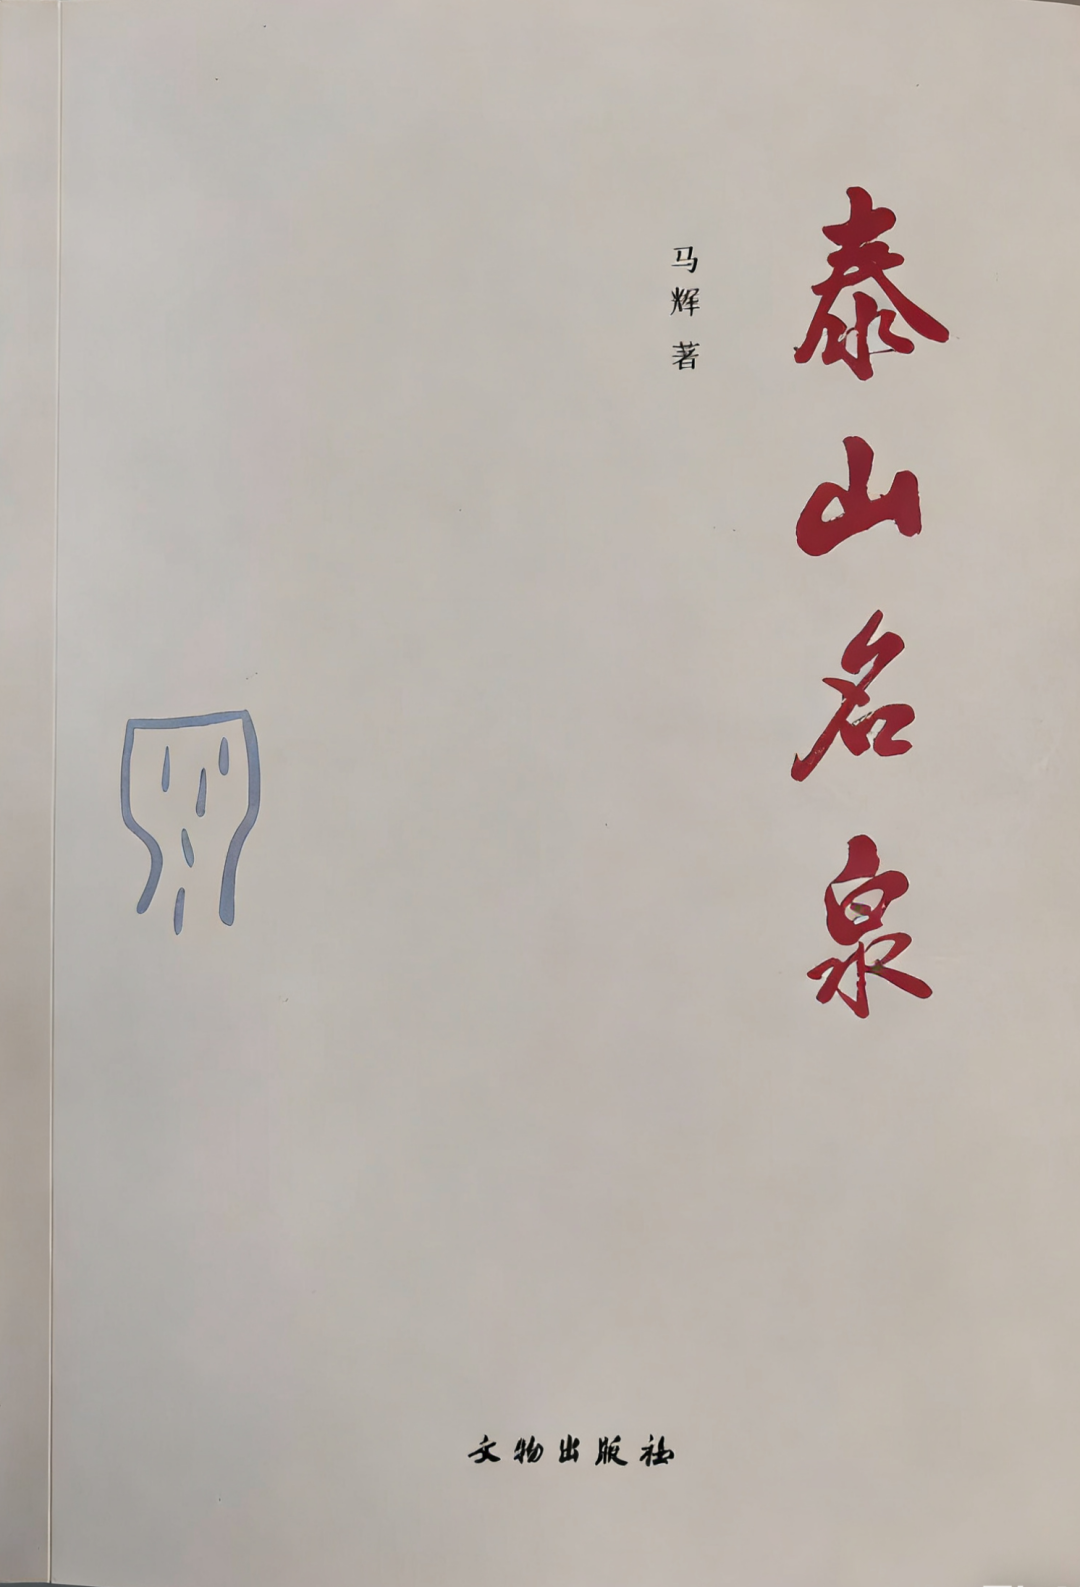 泰山名泉
马辉 著
文物出版社